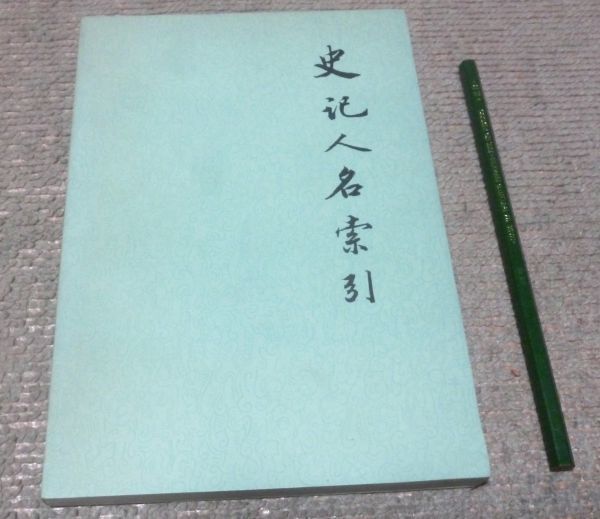 史记人名索引